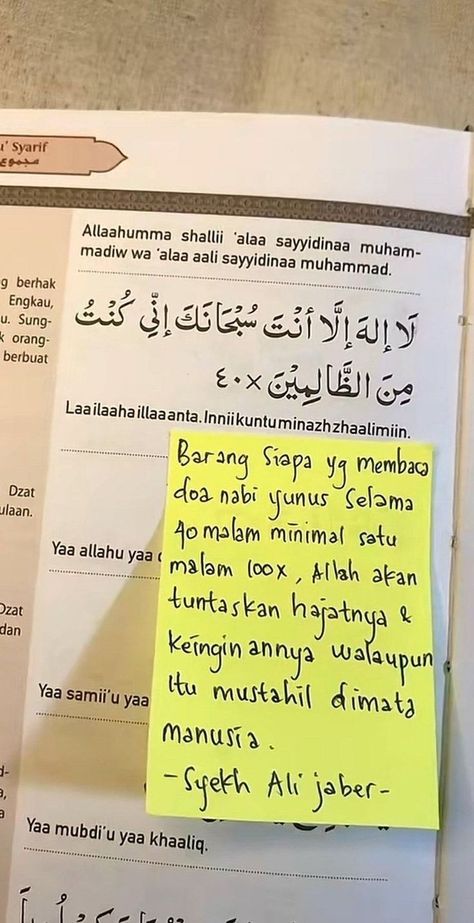 u' Syarif
مجموع
Allaahumma shallii 'alaa sayyidinaa muham-
madiw wa 'alaa aali sayyidinaa muhammad.
لَا إِلٰهَ إِلَّا أَنْتَ سُبْحَانَكَ إِنِّي كُنْتُ
مِنَ الظَّالِمِيْنَ ×٤٠
Laa ilaaha illaa anta. Innii kuntu minazh zhaalimiin.
g berhak
Engkau,
u. Sung-
k orang-
berbuat
Barang Siapa yg membaca
doa nabi yunus Selama
40 malam minimal satu
malam 100x, Allah akan
tuntaskan hajatnya &
Keinginannya walaupun
Itu mustahil dimata
manusia.
-Syekh Ali jaber-
Dzat
ulaan.
Yaa allahu yaa
Dzat
dan
Yaa samii'u yaa
d-
a,
a
Yaa mubdi'u yaa khaaliq.